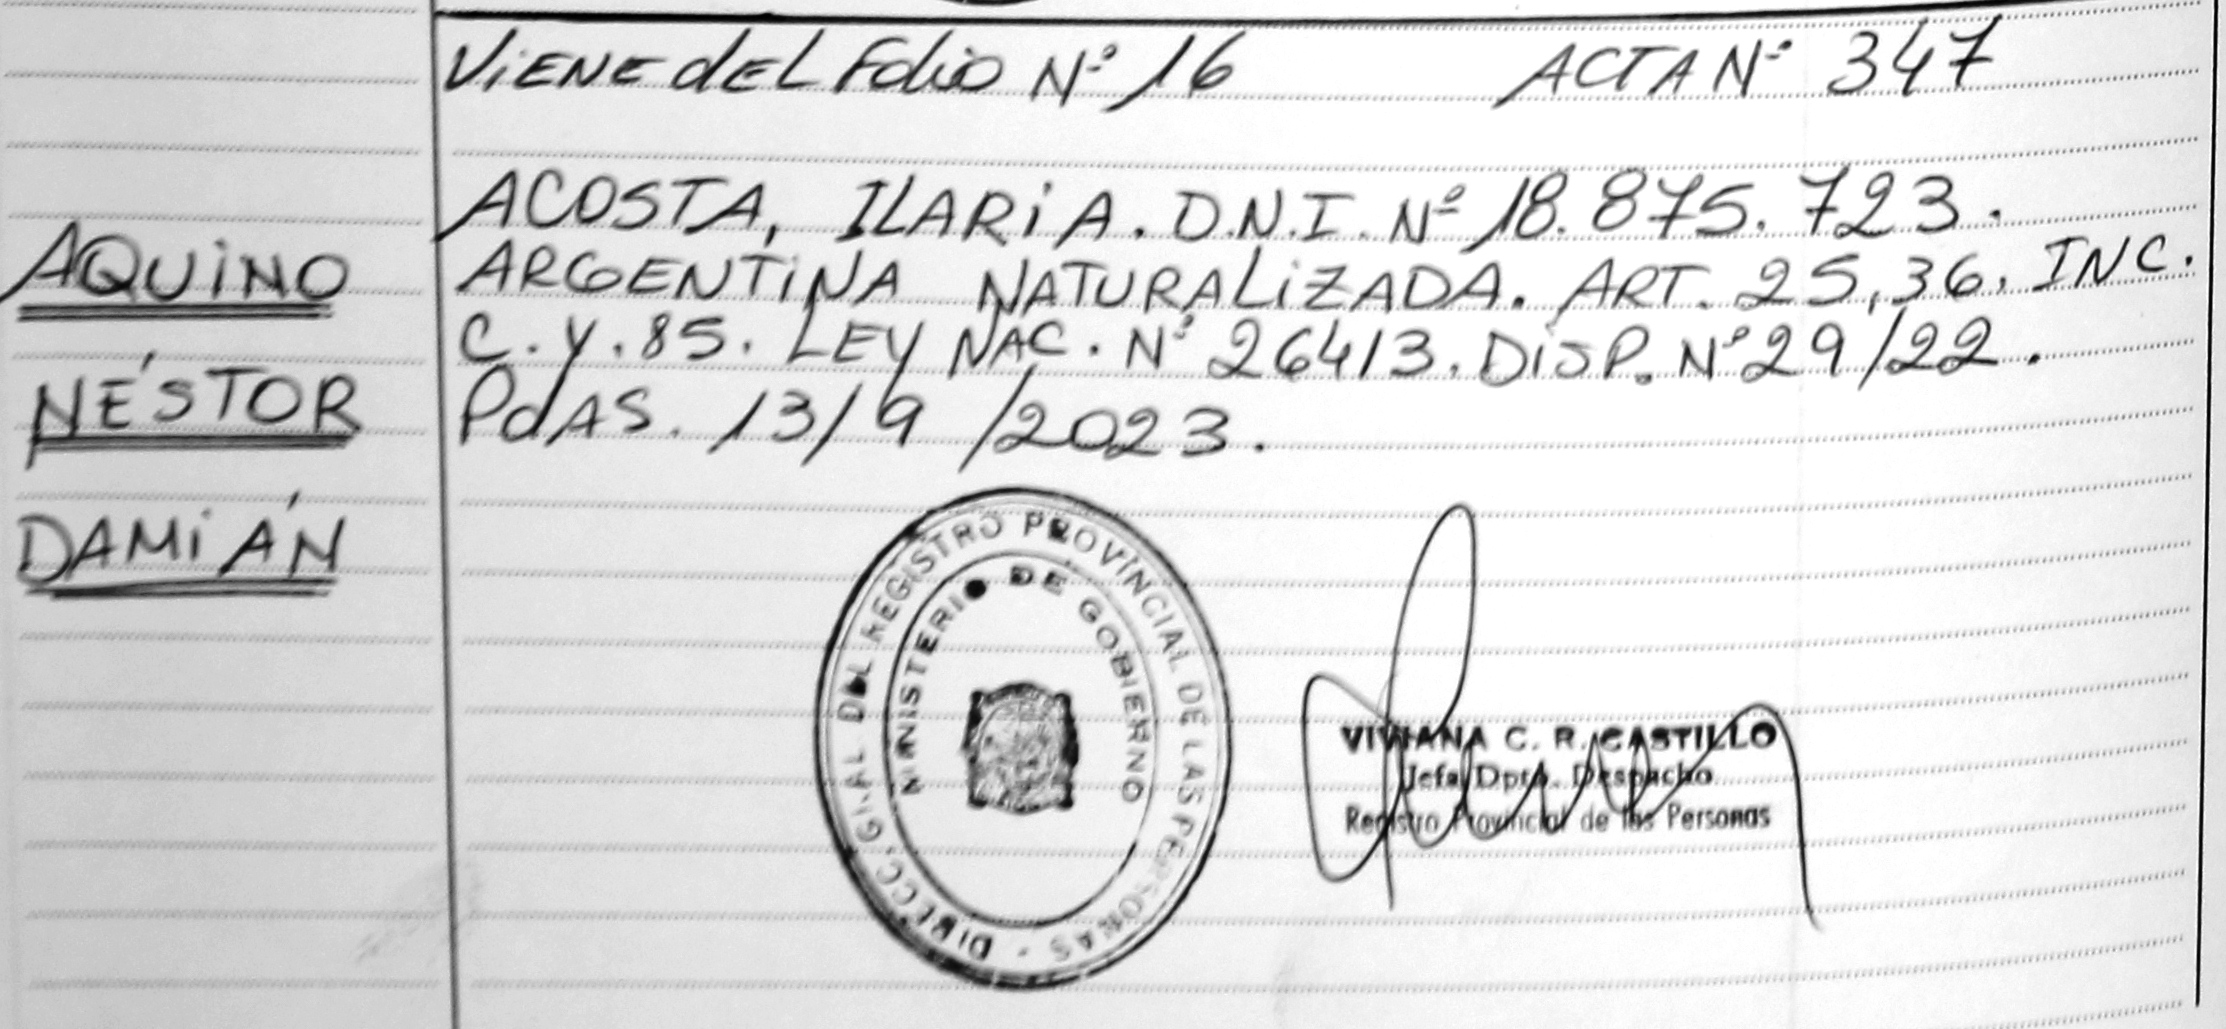 ViENE dEL Folio Nº 16 ACTA Nº 347
AQUiNO
NÉSTOR
DAMiÁN
ACOSTA, ILARiA. D.N.I. Nº 18.875.723.
ARGENTiNA NATURALiZADA. ART. 25,36. INC.
C.Y.85. LEY NAC. Nº 26413. DiSP. Nº 29/22.
PdAS. 13/9/2023.
DIRECC. GRAL DEL REGISTRO PROVINCIAL DE LAS PERSONAS -
MINISTERIO DE GOBIERNO
VIVIANA C. R. CASTILLO
Jefa Dpto. Despacho
Registro Provincial de las Personas